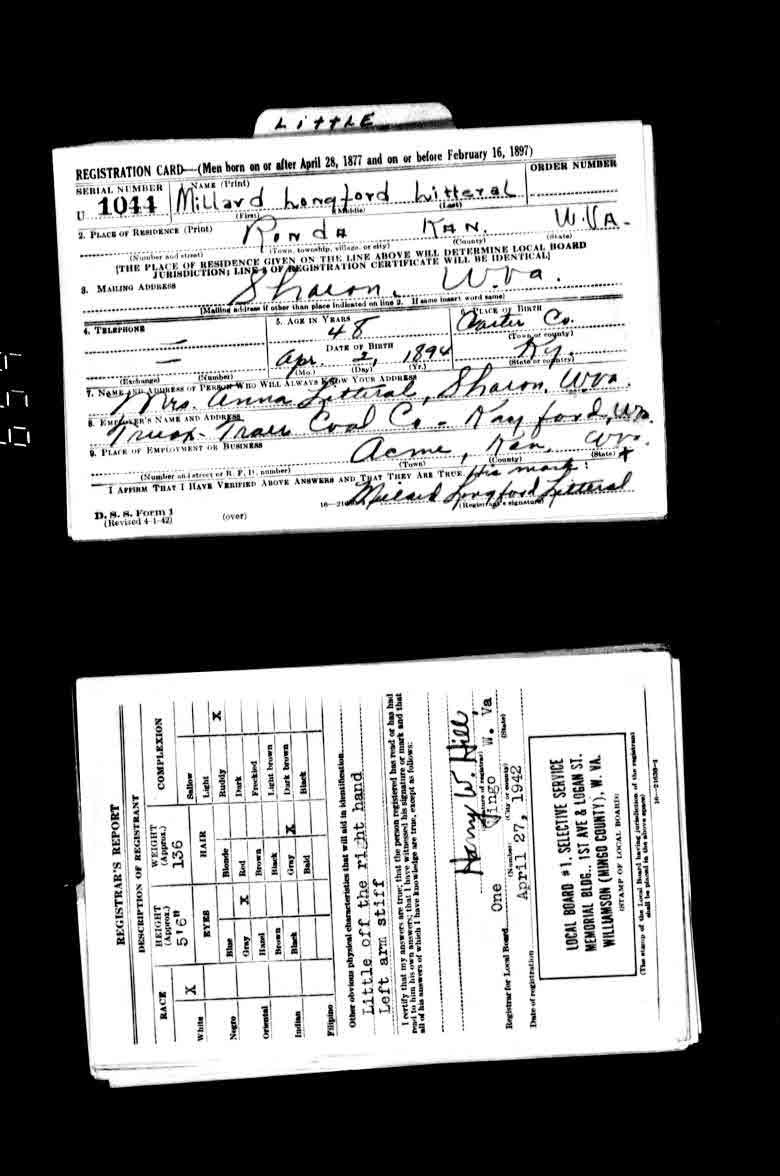 LITTLE
REGISTRATION CARD—(Men born on or after April 28, 1877 and on or before February 16, 1897)
SERIAL NUMBER
1. NAME (Print)
ORDER NUMBER
U 1044
Millard Longford Litteral
(First) (Middle) (Last)
2. PLACE OF RESIDENCE (Print)
Ronda Kan. W.Va.
(Number and street) (Town, township, village, or city) (County) (State)
[THE PLACE OF RESIDENCE GIVEN ON THE LINE ABOVE WILL DETERMINE LOCAL BOARD
JURISDICTION; LINE 2 OF REGISTRATION CERTIFICATE WILL BE IDENTICAL]
3. MAILING ADDRESS
Sharon, W.Va.
[Mailing address if other than place indicated on line 2. If same insert word same]
4. TELEPHONE
5. AGE IN YEARS
48
6. PLACE OF BIRTH
Carter Co.
(Town or county)
DATE OF BIRTH
Apr. 2, 1894
Ky.
(Exchange) (Number)
(Mo.) (Day) (Yr.)
(State or country)
7. NAME AND ADDRESS OF PERSON WHO WILL ALWAYS KNOW YOUR ADDRESS
Mrs. Anna Litteral, Sharon, W.Va.
8. EMPLOYER'S NAME AND ADDRESS
Truax-Traer Coal Co - Kayford, W.Va.
9. PLACE OF EMPLOYMENT OR BUSINESS
Acme, Kan, W.Va.
(Number and street or R. F. D. number) (Town) (County) (State)
I AFFIRM THAT I HAVE VERIFIED ABOVE ANSWERS AND THAT THEY ARE TRUE.
His mark: X
Millard Longford Litteral
D. S. S. Form 1
(Revised 4-1-42)
(over)
(Registrant's signature)
REGISTRAR'S REPORT
DESCRIPTION OF REGISTRANT
RACE
HEIGHT (Approx.)
WEIGHT (Approx.)
COMPLEXION
5'6"
136
White X
EYES
HAIR
Sallow
Light
Ruddy X
Dark
Freckled
Light brown
Dark brown
Black
Negro
Oriental
Indian
Filipino
Blue
Gray X
Hazel
Brown
Black
Blonde
Red
Brown
Black
Gray X
Bald
Other obvious physical characteristics that will aid in identification
Little off the right hand
Left arm stiff
I certify that my answers are true; that the person registered has read or has had
read to him his own answers; that I have witnessed his signature or mark and that
all of his answers of which I have knowledge are true, except as follows:
Harry W. Hill
(Signature of registrar)
Registrar for Local Board One Mingo W. Va
(Number) (City or county) (State)
Date of registration April 27, 1942
LOCAL BOARD #1, SELECTIVE SERVICE
MEMORIAL BLDG., 1ST AVE & LOGAN ST.
WILLIAMSON (MINGO COUNTY), W. VA.
(STAMP OF LOCAL BOARD)
(The stamp of the Local Board having jurisdiction of the registrant
shall be placed in the above space)
16—21630-1